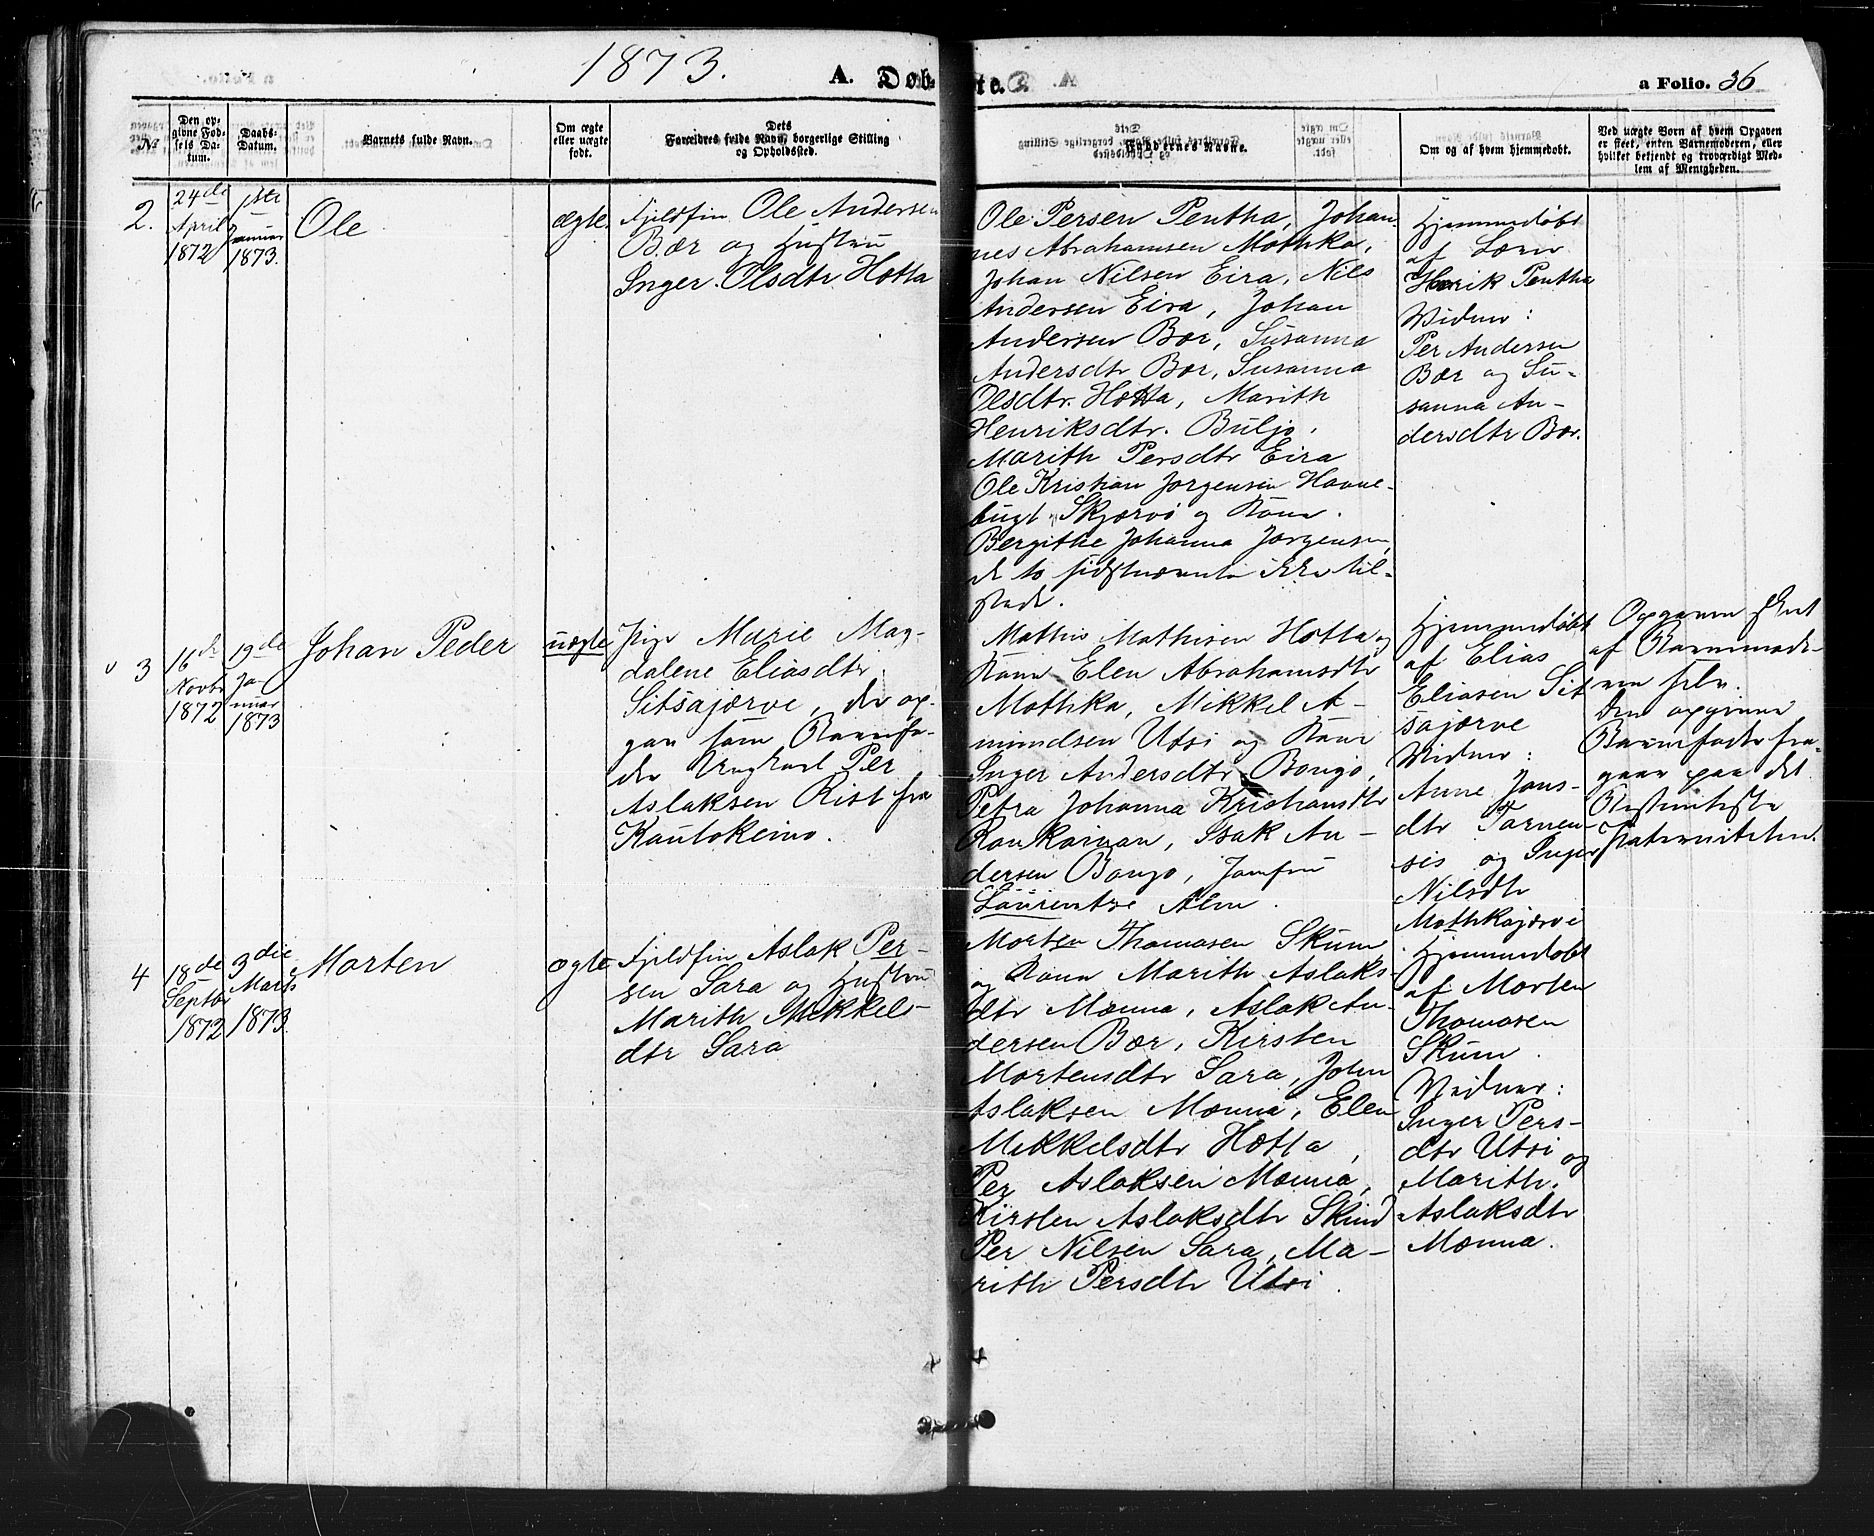 1873.
A. Døb
te.
a Folio. 36
No
Den op-
givne Fød-
sels Da-
tum.
Daabs-
Datum.
Barnets fulde Navn.
Om ægte
eller uægte
født.
Dets
Forældres fulde Navn, borgerlige Stilling
og Opholdssted.
Faddernes Navne.
Om og af hvem hjemmedøbt.
Ved uægte Børn af hvem Opgaven
er skeet, enten Barnemoderen, eller
hvilket bekjendt og troværdigt Med-
lem af Menigheden.
2.
24de
April
1872
1ste
Januar
1873.
Ole
ægte.
Fjeldfin Ole Andersen
Bær og Hustru
Inger Olsdtr Hætta
Ole Persen Pentha, Johan-
nes Abrahamsen Mothka,
Johan Nilsen Eira, Nils
Andersen Eira, Johan
Andersen Bær, Susanna
Andersdtr Bær, Susanna
Olsdtr. Hætta, Marith
Henriksdtr. Buljo,
Marith Persdtr Eira
Ole Kristian Jørgensen Havne-
bugt, Skjærvø og Kone
Bergithe Johanna Jørgensen,
de to sidstnævnte ikke til-
stede.
Hjemmedøbt
af Lærer
Henrik Pentha
Vidner:
Per Andersen
Bær og Su-
sanna An-
dersdtr Bær.
3
16de
Novbr
1872
19de
Ja-
nuar
1873
Johan Peder
uægte
Pige Marie Mag-
dalene Eliasdtr
Sitsajærve, der op-
gav som Barnefa-
der Ungkarl Per
Aslaksen Rist fra
Kautokeino.
Mathis Mathisen Hætta og
Kone Elen Abrahamsdtr
Mothka, Mikkel A-
mundsen Utsi og Kone
Inger Andersdtr Bongo,
Petra Johanna Kristiansdtr
Raukainan, Isak An-
dersen Bongo, Jomfru
Laurentze Alm.
Hjemmedøbt
af Elias
Eliasen Sit
sajærve
Vidner:
Anne Jons-
dtr Tornen-
sis og Inger
Nilsdtr
Mathkajærvi
Opgaven skeet
af Barnemode-
ren selv.
Den opgivne
Barnefader fra-
gaar paa det
Bestemteste
Paterniteten.
4
18de
Septbr
1872
3die
Marts
1873.
Morten
ægte
Fjeldfin Aslak Per-
sen Sara og Hustru
Marith Mikkels-
dtr Sara
Morten Thomasen Skum
og Kone Marith Aslaks-
dtr Mænna, Aslak An-
dersen Bær, Kirsten
Mortensdtr Sara, John
Aslaksen Mænna, Elen
Mikkelsdtr Hætta,
Per Aslaksen Mænna,
Kirsten Aslaksdtr Skum
Per Nilsen Sara, Ma-
rith Persdtr Utsi.
Hjemmedøbt
af Morten
Thomasen
Skum.
Vidner:
Inger Pers-
dtr Utsi og
Marith
Aslaksdtr
Mænna.